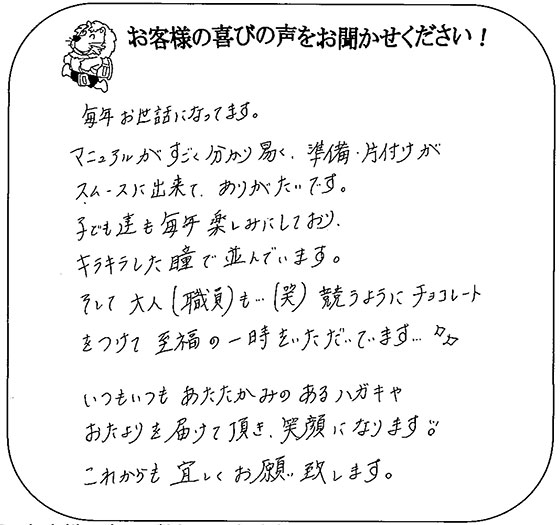 お客様の喜びの声をお聞かせください！
毎年お世話になってます。
マニュアルがすごく分かり易く、準備・片付けが
スムースに出来て、ありがたいです。
子ども達も毎年楽しみにしており、
キラキラした瞳で並んでいます。
そして大人(職員)も…(笑)競うようにチョコレート
をつけて至福の一時をいただいています…
いつもいつもあたたかみのあるハガキや
おたよりを届けて頂き、笑顔になります
これからも宜しくお願い致します。